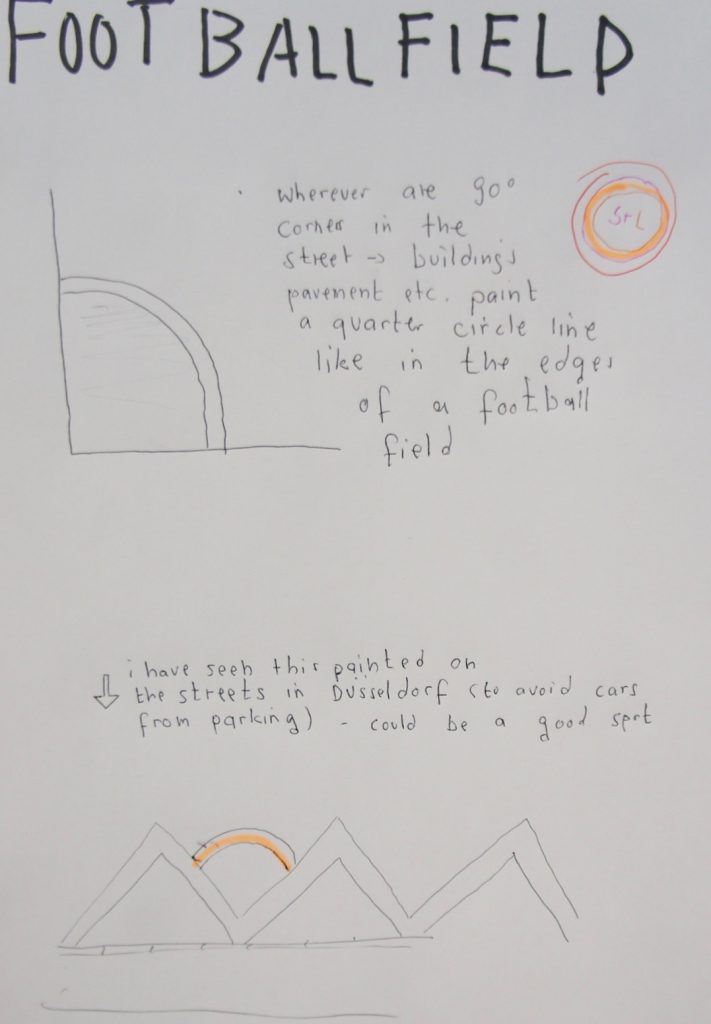 FOOTBALLFIELD
wherever are 90°
corner in the
street → building's
pavement etc. paint
a quarter circle line
like in the edges
of a football
field
StL
i have seen this painted on
the streets in Düsseldorf (to avoid cars
from parking) - could be a good spot